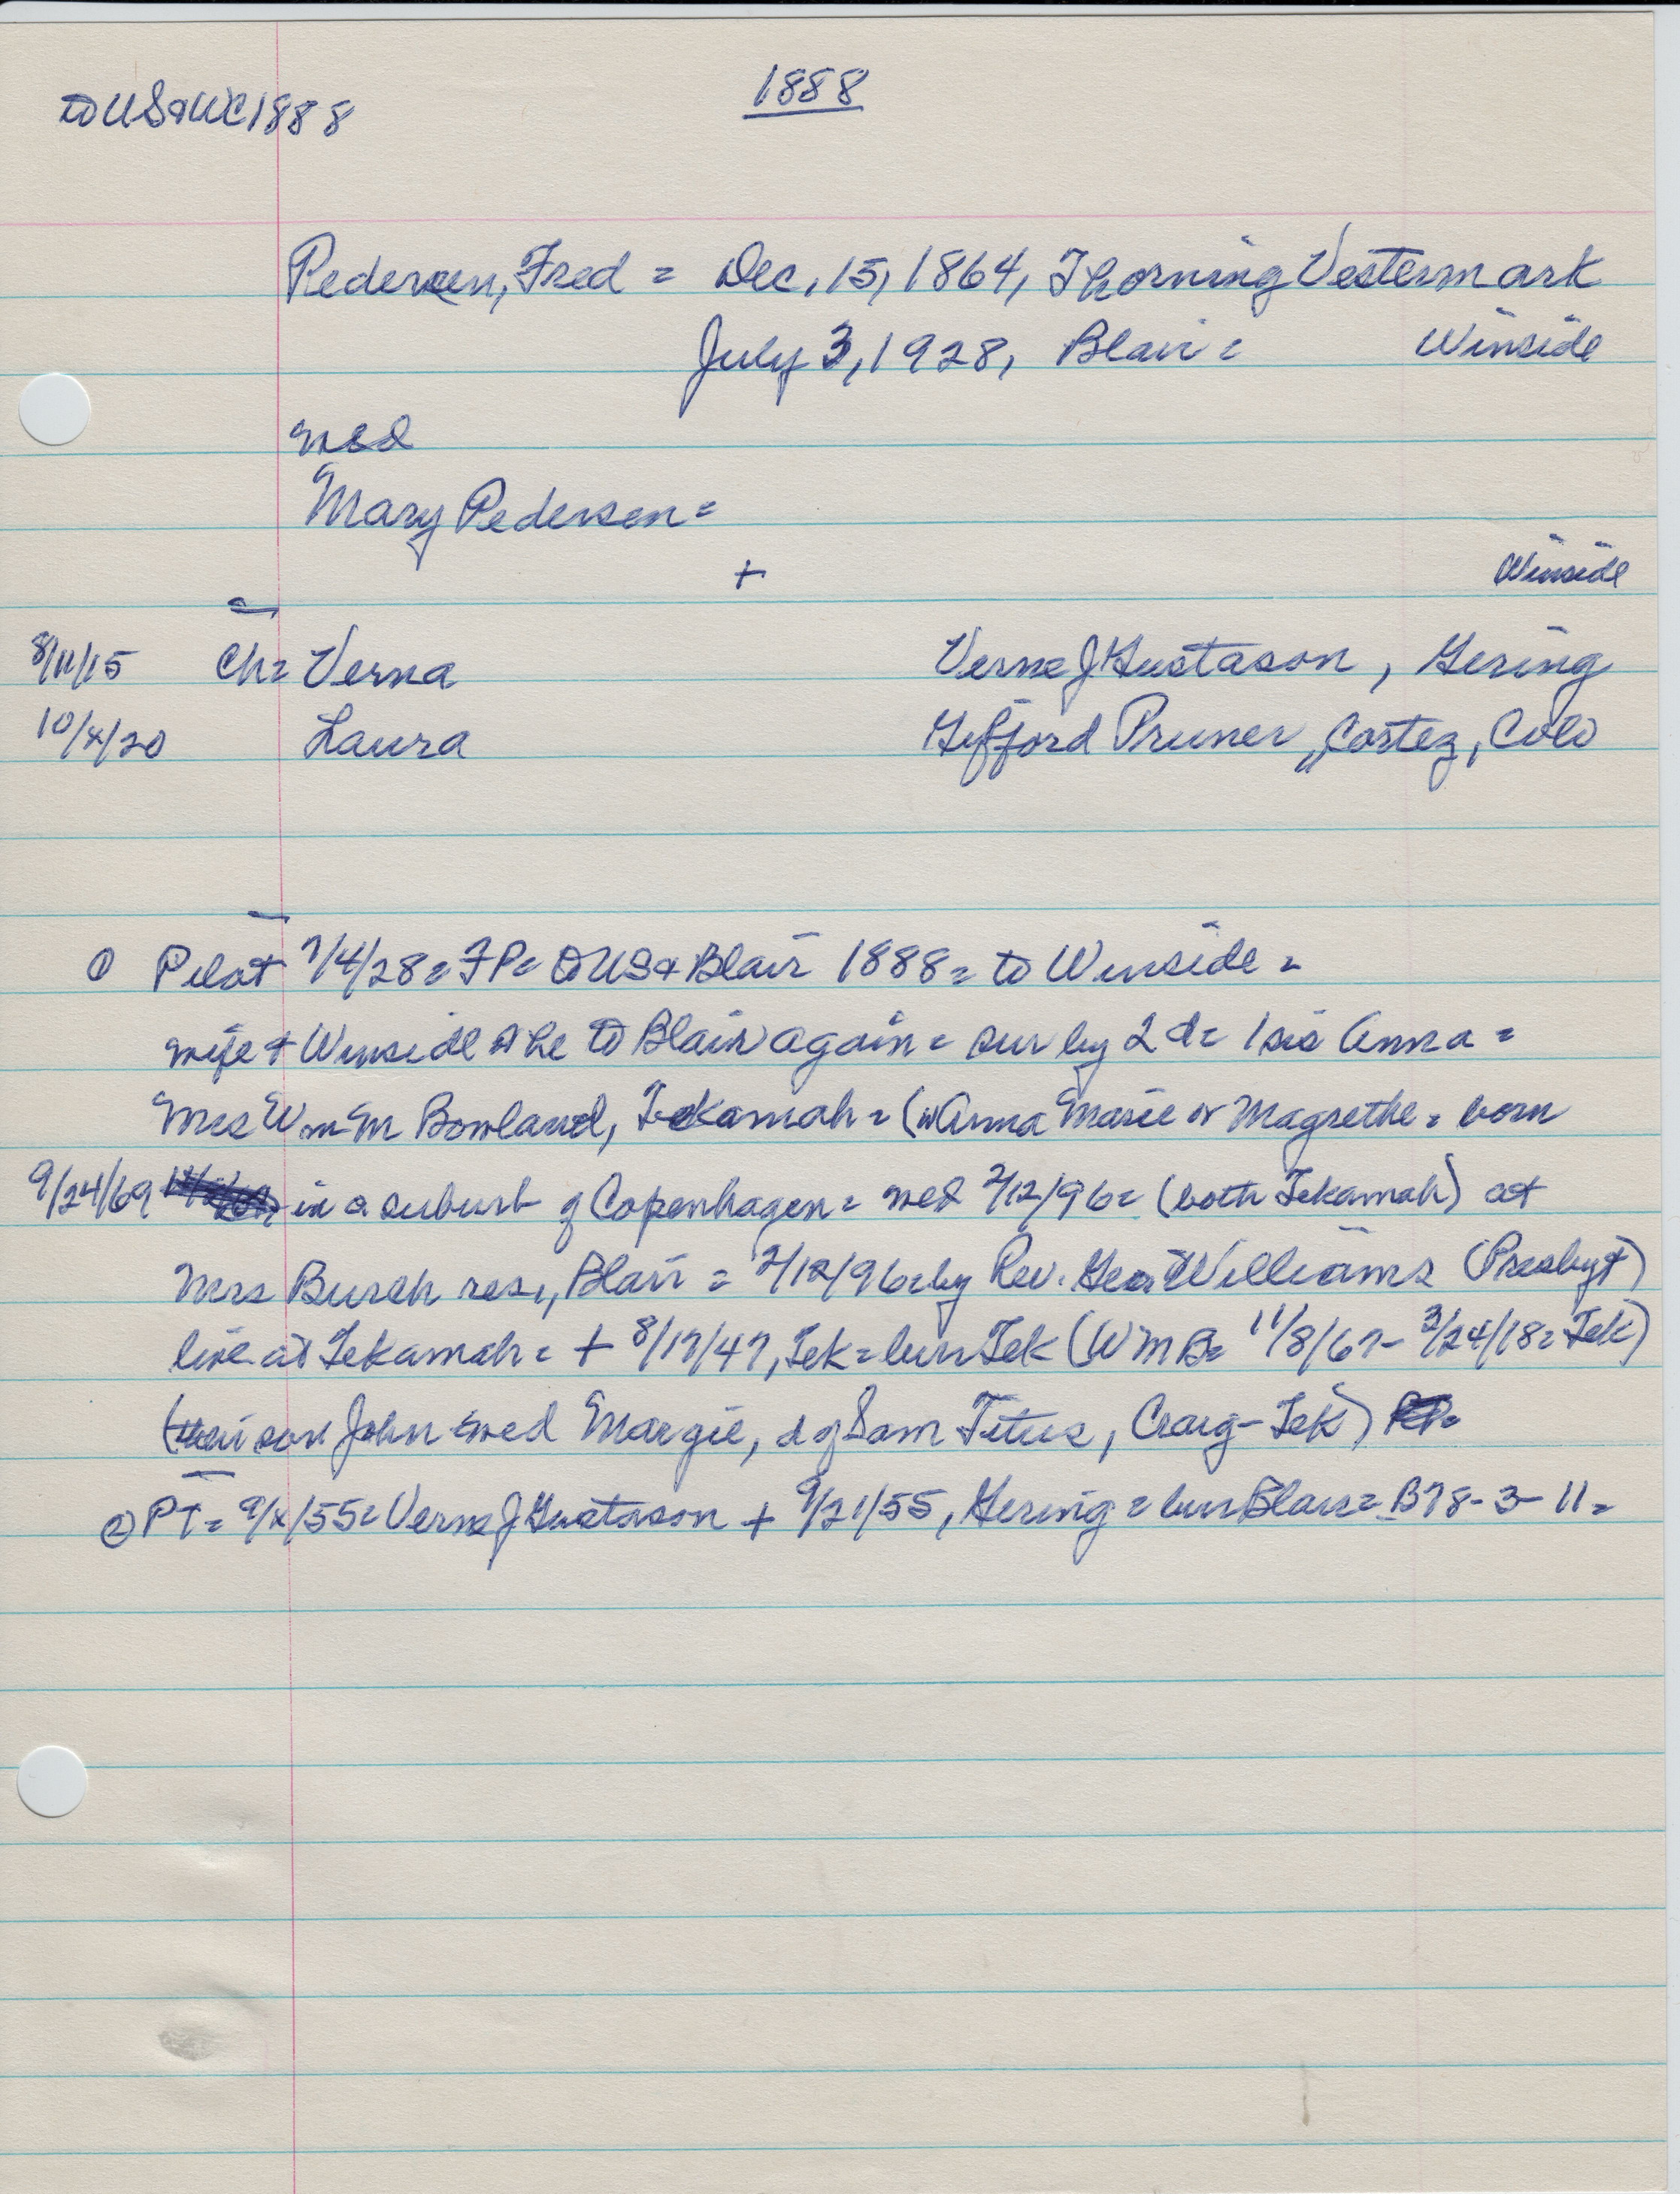 1888
to US & WC 1888
Pedersen, Fred = Dec, 15, 1864, Thorning Vestermark
July 3, 1928, Blair = Winside
med
Mary Pedersen =
+ Winside
8/11/15 Ch = Verna Verne J Gustason, Gering
10/x/20 Laura Gifford Pruner, Cortez, Colo
① Pilot 7/4/28 = FP = to US & Blair 1888 = to Winside =
wife + Winside & he to Blair again = sur by 2 d = 1 sis Anna =
Mrs Wm M Bowland, Tekamah = (Anna Marie or Magrethe = born
9/24/69 in a suburb of Copenhagen = med 2/12/96 = (both Tekamah) at
Mrs Busch res., Blair = 2/12/96 = by Rev. Geo Williams (Presbyt)
live at Tekamah = + 8/17/47, Tek = bur Tek (WMB = 11/8/67 - 3/24/18 = Tek)
(their son John med Margie, d of Sam Titus, Craig-Tek)
② PT = 9/x/55 = Verne J Gustason + 9/21/55, Gering = bur Blair = B78-3-11 =